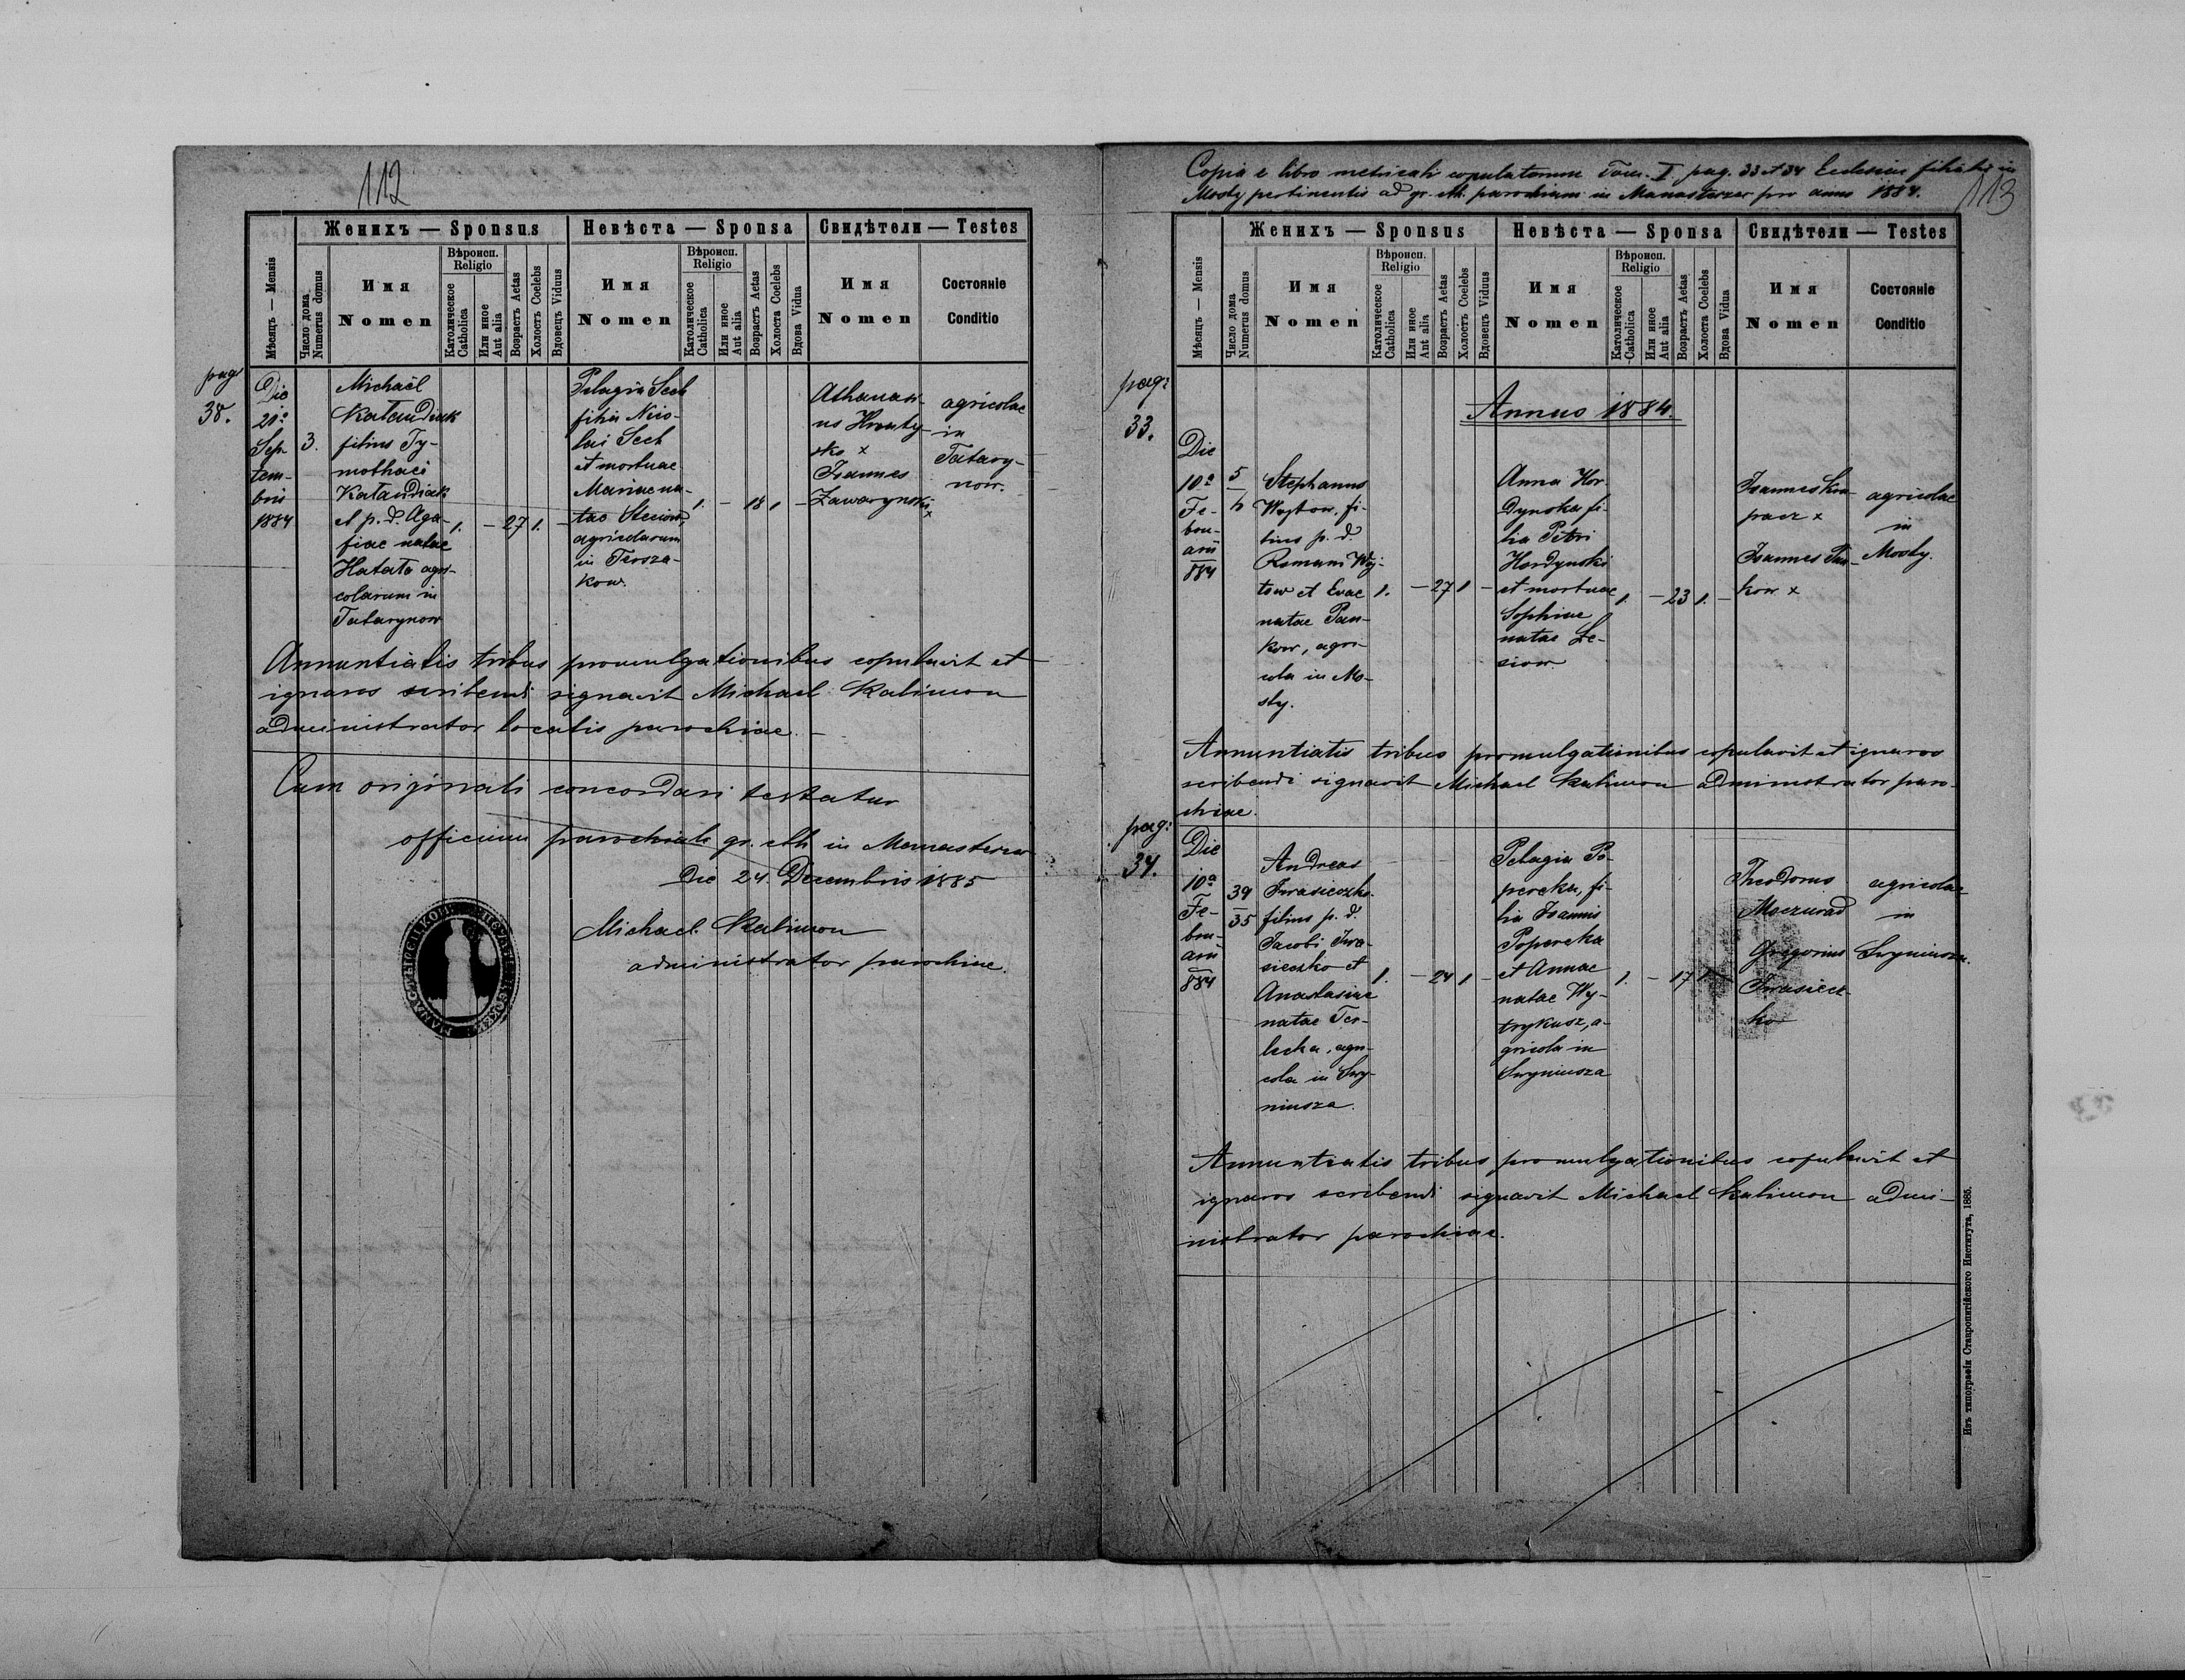 112
Женихъ — Sponsus
Невѣста — Sponsa
Свидѣтели — Testes
Мѣсяцъ — Mensis
Число дома
Numerus domus
Имя
Nomen
Вѣроисп.
Religio
Католическое
Catholica
Или иное
Aut alia
Возрастъ Aetas
Холостъ Coelebs
Вдовецъ Viduus
Имя
Nomen
Вѣроисп.
Religio
Католическое
Catholica
Или иное
Aut alia
Возрастъ Aetas
Холоста Coelebs
Вдова Vidua
Имя
Nomen
Состояніе
Conditio
pag
38.
Die
21ª
Sep-
tem-
bris
1884
3.
Michaël
filius Ty-
mothaei
et p. d. Aga-
fiae natae
Hatało agri-
colarum in
Tatarynow
1. — 27 1. —
Pelagia Sech
filia Nico-
lai Sech
et mortuae
Mariae na-
tae Steciow,
agricolarum
in Tersza-
kow.
1. — 18 1 —
Athanasi-
us
x
Joannes
Zawarynski
x
agricolae
in
Tatary-
now.
Annuntiatis tribus promulgationibus copulavit et
ignaros scribendi signavit Michael Kalimon
administrator localis parochiae. —
Cum originali concordari testatur
officium parochiale gr. cth. in Manasterzec
Die 24. Decembris 1885
Michael Kalimon
administrator parochiae.
Copia e libro metricali copulatorum Tom. I. pag. 33 et 34 Ecclesiae filialis in
Mosty pertinentis ad gr. cth. parochiam in Manasterzec pro anno 1884.
113
Женихъ — Sponsus
Невѣста — Sponsa
Свидѣтели — Testes
Мѣсяцъ — Mensis
Число дома
Numerus domus
Имя
Nomen
Вѣроисп.
Religio
Католическое
Catholica
Или иное
Aut alia
Возрастъ Aetas
Холостъ Coelebs
Вдовецъ Viduus
Имя
Nomen
Вѣроисп.
Religio
Католическое
Catholica
Или иное
Aut alia
Возрастъ Aetas
Холоста Coelebs
Вдова Vidua
Имя
Nomen
Состояніе
Conditio
Annus 1884.
pag:
33.
Die
10ª
Fe-
bru-
arii
884
5
Stephanus
Wojtow, fi-
lius p. d.
Romani Woj-
tow et Evae
natae Pan-
kow, agri-
cola in Mo-
sty.
1. — 27 1 —
Anna Hor-
dynska fi-
lia Petri
Hordynski
et mortuae
Sophiae
natae Le-
siow.
1. — 23 1. —
Joannes
x
Joannes Pan-
kow x
agricolae
in
Mosty.
Annuntiatis tribus promulgationibus copulavit et ignaros
scribendi signavit Michael Kalimon administrator paro-
chiae.
pag:
34.
Die
10ª
Fe-
bru-
arii
884
39
35
Andreas
Iwasieczko
filius p. d.
Jacobi Iwa-
sieczko et
Anastasiae
natae Ter-
lecka, agri-
cola in Swy-
niusza.
1. — 24 1 —
Pelagia Po-
perecka, fi-
lia Joannis
Poperecka
et Annae
natae Wy-
trykusz, a-
gricola in
Swyniusza
1. — 17 1 —
Theodorus
Moczurad
Gregorius
Iwasiecz-
ko
agricolae
in
Swyniusza.
Annuntiatis tribus promulgationibus copulavit et
ignaros scribendi signavit Michael Kalimon admi-
nistrator parochiae.
Изъ типографіи Ставропигійского Института, 1885.